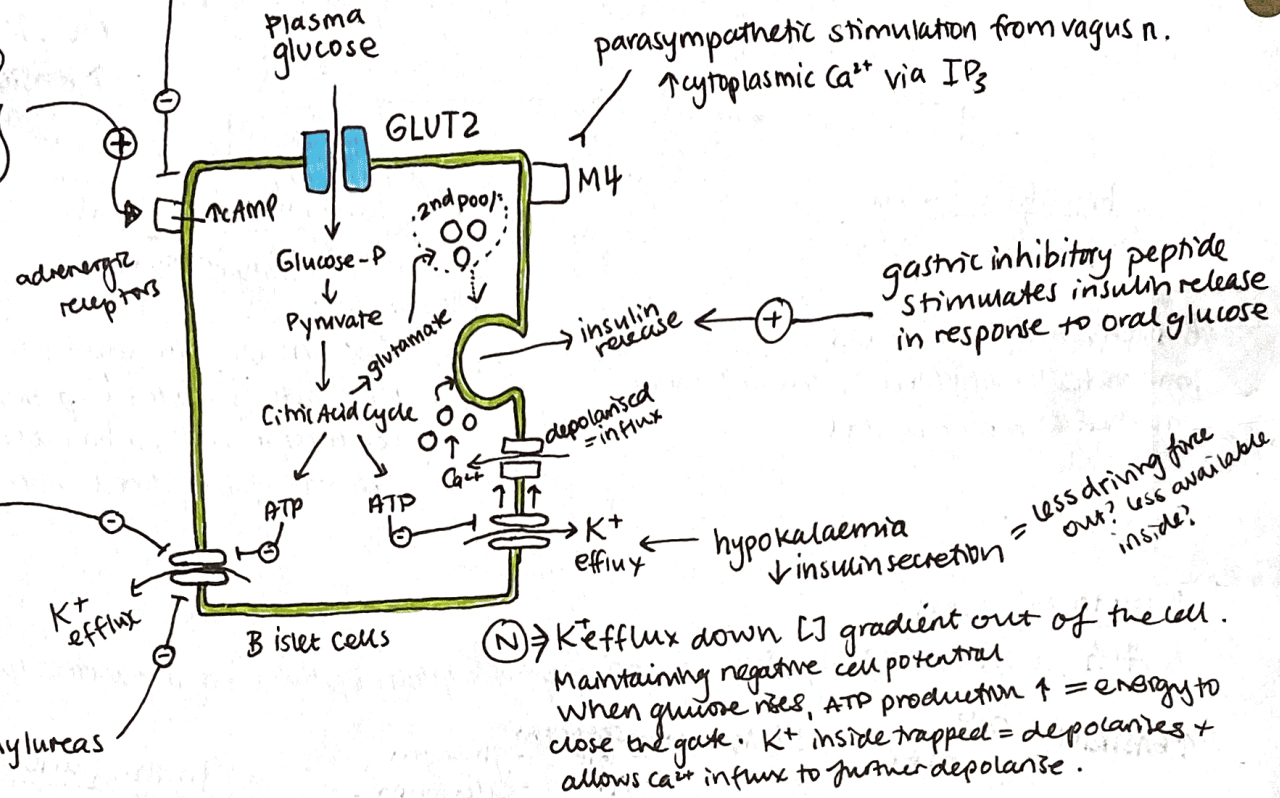 plasma
glucose
GLUT2
parasympathetic stimulation from vagus n.
↑cytoplasmic Ca²⁺ via IP₃
M4
⊖
⊕
↑cAMP
adrenergic
receptors
2nd pool
Glucose-P
Pyruvate
glutamate
Citric Acid Cycle
ATP
ATP
⊖
⊖
insulin
release
⊕
gastric inhibitory peptide
stimulates insulin release
in response to oral glucose
depolarised
=influx
Ca²⁺
K⁺
efflux
hypokalaemia
↓insulin secretion
= less driving force
out? less available
inside?
⊖
K⁺
efflux
⊖
ylureas
B islet cells
Ⓝ ⇒ K⁺efflux down [] gradient out of the cell.
Maintaining negative cell potential
When glucose rises, ATP production ↑ = energy to
close the gate. K⁺ inside trapped = depolarises +
allows ca²⁺ influx to further depolarise.